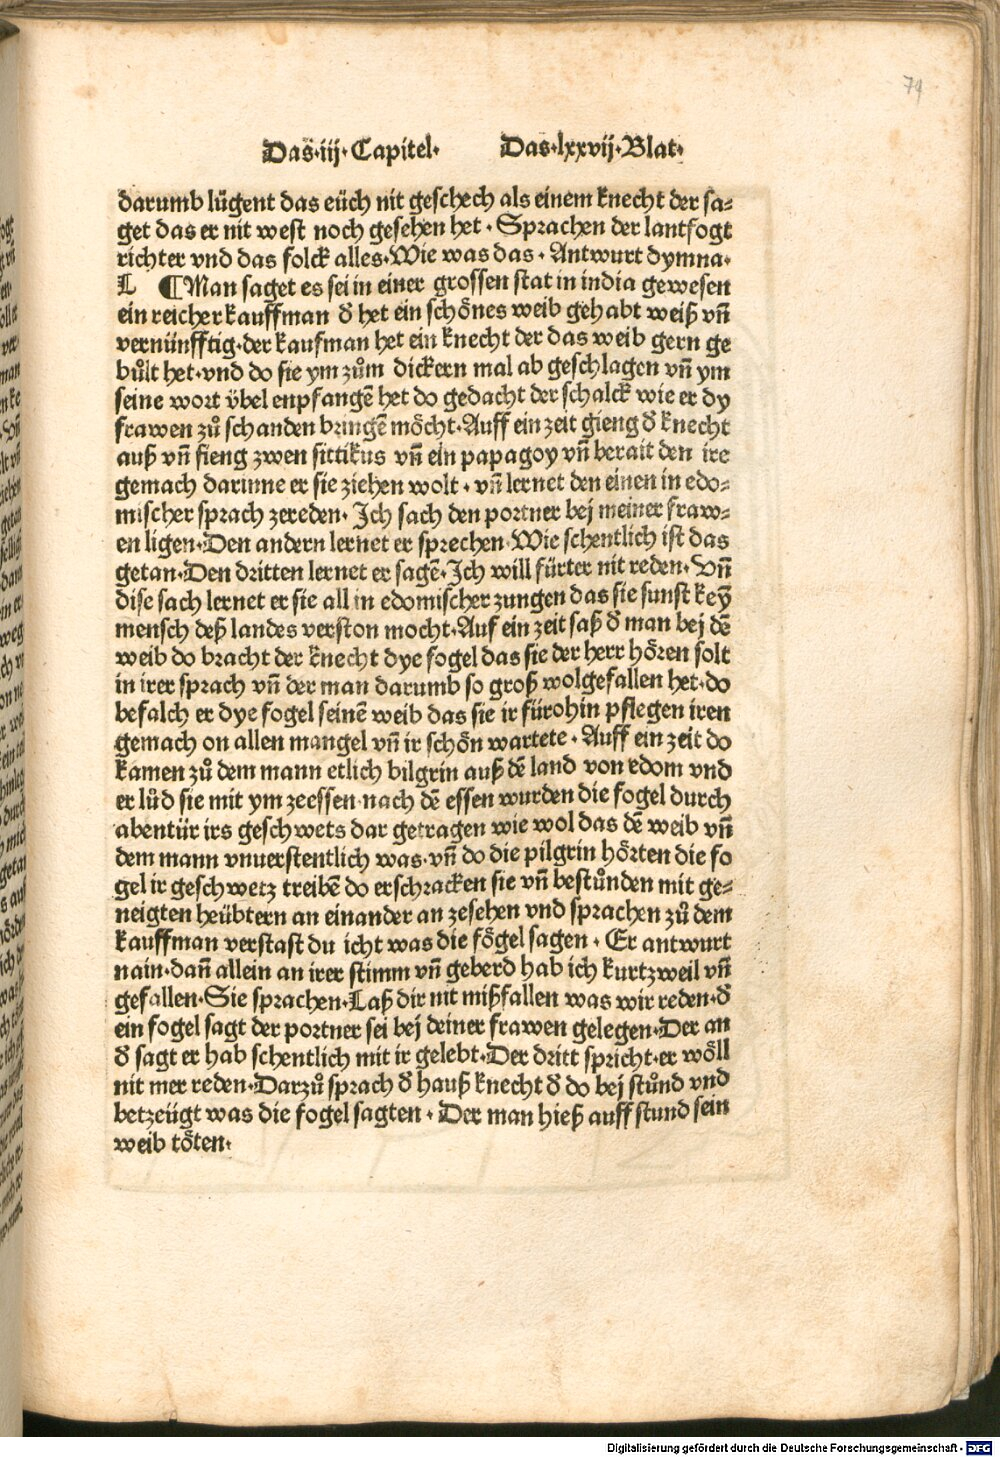 79
Das·iij·Capitel· Das·lxxvij·Blat·
darumb lůgent das eüch nit geschech als einem knecht der sa⸗
get das er nit west noch gesehen het · Sprachen der lantfogt
richter vnd das folck alles·Wie was das · Antwurt dymna·
L ¶Man saget es sei in einer grossen stat in india gewesen
ein reicher kauffman d̄ het ein schönes weib gehabt weiß vn̄
vernünfftig·der kaufman het ein knecht der das weib gern ge
bůlt het·vnd do sie ym zům dickern mal ab geschlagen vn̄ ym
seine wort übel enpfangē het do gedacht der schalck wie er dy
frawen zů schanden bringē möcht·Auff ein zeit gieng d̄ knecht
auß vn̄ fieng zwen sittikus vn̄ ein papagoy vn̄ berait den ire
gemach darinne er sie ziehen wolt · vn̄ lernet den einen in edo⸗
mischer sprach zereden· Ich sach den portner bej meiner fraw⸗
en ligen·Den andern lernet er sprechen·Wie schentlich ist das
getan·Den dritten lernet er sagē·Ich will fürter nit reden· Vn̄
dise sach lernet er sie all in edomischer zungen das sie sunst keȳ
mensch deß landes verston mocht·Auf ein zeit saß d̄ man bej dē
weib do bracht der knecht dye fogel das sie der herr hören solt
in irer sprach vn̄ der man darumb so groß wolgefallen het·do
befalch er dye fogel seinē weib das sie ir fürohin pflegen iren
gemach on allen mangel vn̄ ir schön wartete · Auff ein zeit do
kamen zů dem mann etlich bilgrin auß dē land von edom vnd
er lůd sie mit ym zeessen·nach dē essen wurden die fogel durch
abentür irs geschwets dar getragen wie wol das dē weib vn̄
dem mann vnuerstentlich was·vn̄ do die pilgrin hörten die fo
gel ir geschwetz treibē do erschracken sie vn̄ bestůnden mit ge⸗
neigten heübtern an einander an zesehen vnd sprachen zů dem
kauffman verstast du icht was die fögel sagen · Er antwurt
nain·dañ allein an irer stimm vn̄ geberd hab ich kurtzweil vn̄
gefallen·Sie sprachen·Laß dir nit mißfallen was wir reden·d̄
ein fogel sagt der portner sei bej deiner frawen gelegen·Der an
d̄ sagt er hab schentlich mit ir gelebt·Der dritt spricht·er wöll
nit mer reden·Darzů sprach d̄ hauß knecht d̄ do bej stůnd vnd
betzeügt was die fogel sagten · Der man hieß auff stund sein
weib töten·
Digitalisierung gefördert durch die Deutsche Forschungsgemeinschaft - DFG